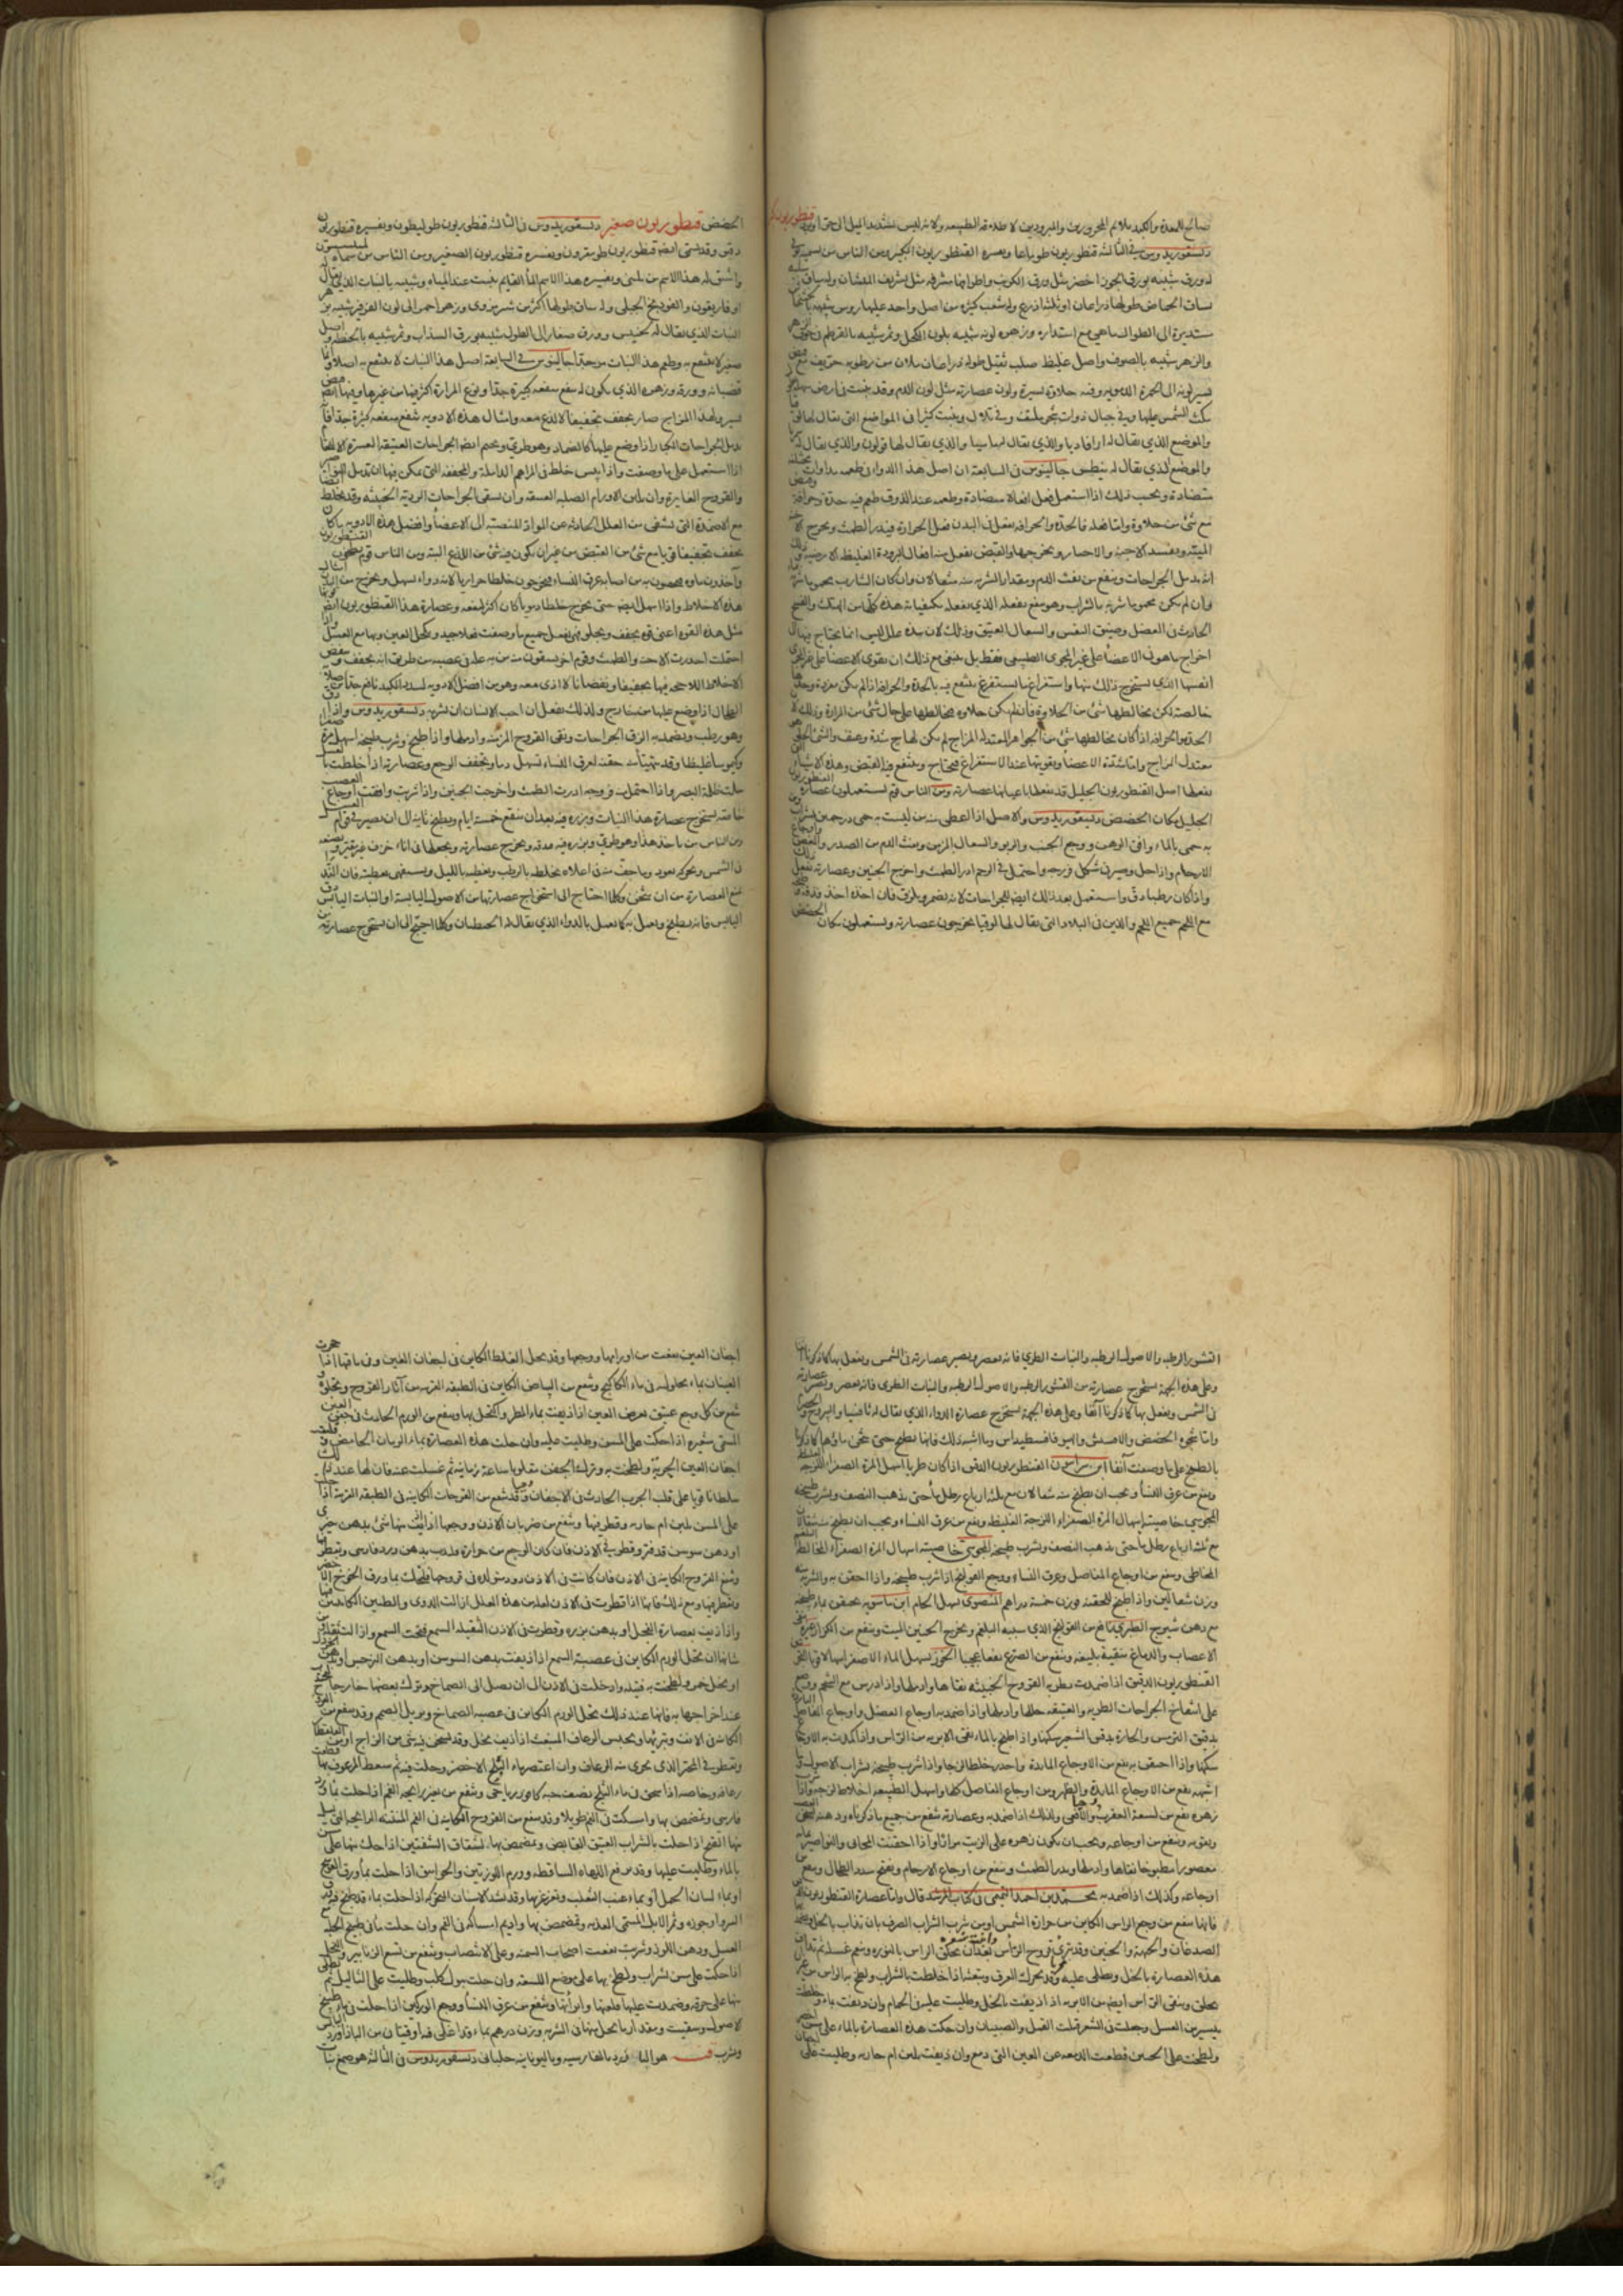 صالح للمعدة والكبد ملائم للمحرورين والمبرودين لاطلاقه الطبيعة ولانه ليس بشديد الميل الى قنطوريون
ديسقوريدوس في الثالثة قنطوريون طوماغا وتفسيره القنطوريون الكبير ومن الناس من يسميه
له ورق شبيه بورق الجوز اخضر مثل ورق الكرنب واطرافها مشرفة مثل تشريف المنشار وله ساق
ساق الحماض طولها ذراعان او ثلثة اذرع وله شعب كثيرة من اصل واحد عليها روس شبيهة
مستديرة الى الطول ما هي مع استدارة وزهره لونه شبيه بلون الكحل وثمر شبيه بالقرطم في جوف
والزهر شبيه بالصوف واصل غليظ صلب ثقيل طوله ذراعان ملان من رطوبة حريف مع
يسير لونه الى الحمرة الدموية وفيه حلاوة يسيرة ولون عصارته مثل لون الدم وقد ينبت في ارض
الشمس عليها وفي جبال ذوات شجر ملتف وفي تلال وينبت كثيرا في المواضع التي يقال لها
والموضع الذي يقال له ارقاديا والذي يقال لها والذي يقال لها والذي يقال له
والموضع الذي يقال له جالينوس في السابعة ان اصل هذا الدواء في طعمه مذاقات مختلفة
متضادة وبحسب ذلك اذا استعمل فعل افعالا متضادة وطعمه عند الذوق طعم فيه حدة وحرافة وقبض
مع شيء من حلاوة واما فعله فالحدة والحرافة تفعل في البدن فعل الحرارة فيدر الطمث ويخرج الاجنة
الميتة ويفسد الاحياء ويخرجها والقبض يفعل من افعال البرودة الغليظة الارضية
انه يدمل الجراحات وينفع من نفث الدم ومقدار الشربة منه مثقالان وان كان الشارب محموما
وان لم يكن محموما شربه بالشراب وهو ينفع بفعله الذي يفعله بكيفياته هذه كلها من الهتك والفسخ
الحادث في العضل وضيق النفس والسعال العتيق وذلك لان هذه علل ليس انما يحتاج فيها الى
اخراج ما هو في الاعضاء على غير المجرى الطبيعي فقط بل ينبغي مع ذلك ان يقوى الاعضاء
انفسها الذي يستخرج ذلك منها واستفراغ ما يستفرغ ينتفع فيه بالحدة والحرافة اذا لم يكن مفردة
خالصة لكن يخالطها شيء من الحلاوة فان لم يكن حلاوة يخالطها على حال شيء من المرارة
الحدة والحرافة اذا كان يخالطها شيء من الجواهر المعتدلة المزاج لم يكن لها شدة وعنف والشيء الحلو
معتدل المزاج واما شدة الاعضاء وتقويتها عند الاستفراغ فيحتاج وينتفع فيه بالقبض وهذه الاشياء
يفعلها اصل القنطوريون الجليل قد يفعلها باعيانها عصارته ومن الناس قوم يستعملون عصارة القنطوريون
الجليل مكان الحضض ديسقوريدوس والاصل اذا اعطي منه من ليست به حمى درخمين بشراب
به حمى بالماء وافق الوهن ووجع الجنب والربو والسعال المزمن ونفث الدم من الصدر والمغص
الارحام واذا حل وصير في شكل فرزجة واحتمل في الرحم ادر الطمث واخرج الجنين وعصارته تفعل
واذا كان رطبا دق واستعمل بعد ذلك ايضا للجراحات لانه يضمر ويلزق فان اخذه احد ودقه
مع اللحم جمع اللحم والذين في البلاد التي يقال لها لوقيا يخرجون عصارته ويستعملونه مكان الحضض
الحضض قنطوريون صغير ديسقوريدوس في الثالثة قنطوريون طوليطون وتفسيره قنطوريون
دقيق وقد يسمى ايضا قنطوريون طومقرون وتفسيره قنطوريون الصغير ومن الناس من سماه
واشتق له هذا الاسم من لمني وتفسير هذا الاسم الماء القايم ينبت عند المياه وشبيه بالنبات الذي يقال له
اوفاريقون والفوذنج الجبلي وله ساق طولها اكثر من شبر مزوى وزهر احمر الى لون الفرفير شبيه
النبات الذي يقال له لخنيس وورق صغار الى الطول شبيه بورق السذاب وثمر شبيه بالحنطة واصل
صغير لا ينتفع به وطعم هذا النبات مر جدا جالينوس في السابعة اصل هذا النبات لا ينتفع به اصلا
قضبانه وورقه وزهره الذي يكون له ينفع منفعة كثيرة جدا ونوع المرارة اكثر فيها من غيرها وفيها قبض
يسير ولهذا المزاج صار يجفف تجفيفا لا لذع معه وامثال هذه الادوية ينفع منفعة كثيرة جدا
يدمل الجراحات الكبار اذا وضع عليها كالضماد وهو طري ويختم ايضا الجراحات العتيقة العسرة الاندمال
اذا استعمل على ما وصفت واذا يبس خلط في المراهم الدابلة والمجففة التي يمكن فيها ان تدمل
والقروح الغايرة وان تلين الاورام الصلبة العتيقة وان تشفي الجراحات الردية الخبيثة وقد يخلط
مع الاضمدة التي تشفي من العلل الحادثة عن المواد المنصبة الى الاعضاء وافضل هذه الادوية ما كان
يجفف تجفيفا قويا مع شيء من القبض من غير ان يكون فيه شيء من اللذع البتة ومن الناس قوم يطبخون القنطوريون
وياخذون ماءه فيحقنون به من اصابه عرق النسا فيخرجون خلطا مراريا لانه دواء يسهل ويخرج من امثال
هذه الاخلاط واذا اسهل ايضا حتى يخرج خلطا دمويا كان اكثر لنفعه وعصارة هذا القنطوريون ايضا
مثل هذه القوة اعني قوة يجفف ويجلو فهي تفعل جميع ما وصفت فعلا جيدا وتكحل العين بها مع العسل واذا
احتملت احدرت الاجنة والطمث وقوم اخر يسقون منه من به علة في عصبه من طريق انه يجفف وينفض
الاخلاط اللاحجة فيها تجفيفا ونفضانا لا اذى معه وهو من افضل الادوية لسدد الكبد نافع جدا من
الطحال اذا وضع عليها من خارج وكذلك يفعل ان احب الانسان ان يشربه ديسقوريدوس واذا دق
وهو رطب وتضمد به الزق الجراحات ونقى القروح المزمنة وادملها واذا طبخ وشرب طبيخه اسهل مرة صفراء
وكيموسا غليظا وقد يتهيأ منه حقنة لعرق النسا تسهل دما ويخفف الوجع وعصارته اذا خلطت بالعسل
جلت ظلمة البصر واذا احتملت في فرزجة ادرت الطمث واخرجت الجنين واذا شربت وافقت اوجاع العصب
خاصة يستخرج عصارة هذا النبات وبزره فيه بعد ان ينقع خمسة ايام ويطبخ ثانية الى ان يصير في قوام العسل
ومن الناس من ياخذ هذا وهو طري وبزره فيه فيدقه ويخرج عصارته ويجعلها في اناء خزف غير مقير ويضعه
في الشمس ويحركه بعود وما جف منه في اعلاه يخلطه بالرطب ويغطيه بالليل ويستقصي تغطيته فان الندى
يمنع العصارة من ان تثخن وكلما احتاج الى استخراج عصارتها من الاصول اليابسة او النبات اليابس
اليابس فانه يطبخ ويعمل به كما يعمل بالدواء الذي يقال له الجنطيان وكلما احتيج الى ان يستخرج عصارته من
القشور الرطبة والاصول الرطبة والنبات الطري فانه يعصر ويصير عصارته في الشمس ويفعل بها كما ذكرنا
وعلى هذه الجهة يستخرج عصارته من القشور الرطبة والاصول الرطبة والنبات الطري فانه يعصر ويصير عصارته
في الشمس ويفعل بها كما ذكرنا آنفا وعلى هذه الجهة يستخرج عصارة الدواء الذي يقال له ثافسيا واليبروح
واما شجرة الحضض والافسنتين والهيوفاقسطيداس وما اشبه ذلك فانها تطبخ حتى يثخن ماؤها كما ذكرنا
بالطبخ على ما وصفت آنفا القنطوريون الدقيق اذا كان طريا اسهل المرة الصفراء اللزجة
وينفع من عرق النسا ويجب ان يطبخ منه مثقالان مع ثلثة ارباع رطل ماء حتى يذهب النصف ويشرب طبيخه
المجوسي خاصيته اسهال المرة الصفراء اللزجة الغليظة وينفع من عرق النسا ويجب ان يطبخ منه مثقالان
مع ثلثة ارباع رطل ماء حتى يذهب النصف ويشرب طبيخه خاصيته اسهال المرة الصفراء المخالطة للبلغم
المخاطي وينفع من اوجاع المفاصل وعرق النسا ووجع القولنج اذا شرب طبيخه واذا احتقن به والشربة منه
وزن مثقالين واذا طبخ للحقنة فوزن خمسة دراهم المنصوري يسهل الخام ابن ماسويه يحتقن بماء طبيخه
مع دهن شيرج الطبري نافع من القولنج الذي سببه البلغم ويخرج الجنين الميت وينفع من الكزاز
الاعصاب والدماغ تنقية بليغة وينفع من الصرع نفعا عجيبا الخوز يسهل الماء الاصفر
القنطوريون الدقيق اذا ضمدت بطريه القروح الخبيثة نقاها وادملها واذا درس مع الشحم ووضع
على انتفاخ الجراحات الطرية والعتيقة حللها وادملها واذا ضمد به اوجاع العضل واوجاع المفاصل
بدقيق الترمس والحارة بدقيق الشعير سكنها واذا طبخ بالماء نقى الابرية من الراس واذا كمدت به الاوجاع
سكنها واذا احتقن به نفع من الاوجاع الباردة واحدر خلطا لزجا واذا شرب طبيخه بشراب
اشبهه نفع من الاوجاع الباردة والظهر ومن اوجاع المفاصل كلها واسهل الطبيعة اخلاطا لزجة واذا
زهره نفع من لسعة العقرب والافعى وكذلك اذا ضمد به وعصارته تنفع من جميع ما ذكرناه ودهنه
ويقويه وينفع من اوجاعه ويجب ان يكون زهره على الزيت مرارا واذا احتقنت المجاري والنواصير بمائه
معصورا مطبوخا نقاها وادملها ويدر الطمث وينفع من اوجاع الارحام ويفتح سدد الطحال وينفع
اوجاعه وكذلك اذا ضمد به محمد بن احمد التميمي في كتاب المرشد قال واما عصارة القنطوريون
فانها تنفع من وجع الراس الكاين من حرارة الشمس او من شرب الشراب الصرف بان تذاب بالخل
الصدغان والجبهة والجبين وقد تبري قروح الراس بعد ان يحلق الراس بالنورة وينعم غسله ثم
هذه العصارة بالخل ويطلى عليه وقد تحرك العرق وتبعثه اذا خلطت بالشراب ولطخ به الراس
يحلق وينقى الراس ايضا من الابرية اذا اذيفت بالخل وطليت عليه في الحمام وان اذيفت بماء
بيسير من العسل وجعلت في الشعر قتلت القمل والصيبان وان حكت هذه العصارة بالماء على مسن
ولطخت على الجبين قطعت الدمعة عن العين التي تدمع وان اذيفت بلبن ام جارية وطليت على
اجفان العين نفعت من اورامها ووجعها وقد يحل الغلظ الكاين في اجفان العين
العينان بماء محلولة في ماء الكاكنج وينفع من البياض الكاين في الطبقة القرنية من آثار القروح ويجلوه
ينفع من كل وجع عتيق يعرض العين اذا اذيفت بماء المطر واكتحل بها وينفع من الورم الحادث في جفن العين
المسمى شعيرة اذا حكت على المسن وطليت عليه وان حلت هذه العصارة بماء الرمان الحامض
اجفان العين الجربة ولطخت به وترك الجفن مقلوبا ساعة زمانية ثم غسلت عنه فان لها عند ذلك
سلطانا قويا على قلب الجرب الحادث في الاجفان وقد ينفع من القرحات الكاينة في الطبقة القرنية اذا
على المسن بلبن ام جارية وقطر فيها وينفع من ضربان الاذن ووجعها اذا اذيف منها شيء بدهن خيري
او دهن سوسن قد فتر وقطر في الاذن فان كان الوجع من حرارة ديف بدهن ورد فارسي وتقطر
وتنفع القروح الكاينة في الاذن فان كانت في الاذن دود متولدة في قروحها فلتحل بماء ورق الخوخ
وتقطر فيها ومع ذلك فانها اذا قطرت في الاذن لهذه العلل ازالت الدوي والطنين الكاينين
واذا ذيفت بعصارة الفجل او بدهن بزره وقطرت في الاذن الثقيلة السمع فتحت السمع وازالت ثقله
شانها ان تحل الورم الكاين في عصبة السمع اذا اذيفت بدهن السوسن او بدهن النرجس
او بخل خمر ولطخت به فتيلة وادخلت في الاذن الى ان تصل الى الصماخ وترك بعضها خارجا
عند اخراجها به فانها عند ذلك تحل الورم الكاين في عصبة الصماخ ويزيل الصمم وقد ينفع من
الكاينة في الانف ونبريها ويحبس الرعاف المنبعث اذا اذيفت بخل وقد شيء من الزاج
وتقطر في المنخر الذي يجري منه الرعاف وان اعتصر ماء البلح الاخضر وحلت فيه ثم سعط المرعوف بها قطعت
رعافه وخاصة اذا سحق في ماء البلح نصف حبة كافور رياحي وينفع من تغير رايحة الفم اذا حلت بماء ورد
فارسي وتمضمض بها وامسكت في الفم طويلا وقد ينفع من القروح الكاينة في الفم المنتنة الرايحة التي يسيل
منها القيح اذا حلت بالشراب العتيق القابض وتمضمض بها لشقاق الشفتين اذا حك منها على مسن
بالماء وطليت عليها وقد ينفع اللهاة الساقطة وورم اللوزتين والخوانيق اذا حلت بماء ورق
او بماء لسان الحمل او بماء عنب الثعلب وتغرغر بها وقد تشد الاسنان المتحركة اذا حلت بماء قد طبخ فيه
السرو او جوزه وثمر الاثل المسمى العذبة وتمضمض بها واديم امساكه في الفم وان حلت بماء قد طبخ الحلبة
العسل ودهن اللوز وشربت نفعت اصحاب وعلى الانتصاب وينفع من لسع الزنابير والنحل
اذا حكت على مسن بشراب ولطخ بها على موضع اللسعة وان حلت ببول كلب وطليت على الثاليل ثم
منها على خرقة وضمدت عليها قلعتها وابرأتها وينفع من عرق النسا ووجع الوركين اذا حلت في ماء طبيخ
الاصول وسقيت ومقدار ما يحل منها في الشربة وزن درهم بماء قد اغلي فيه اوقيتان من الباذاورد
ويشرب قنة هو البارزد بالفارسية وباليونانية خلباني ديسقوريدوس في الثالثة هو صمغ نبات